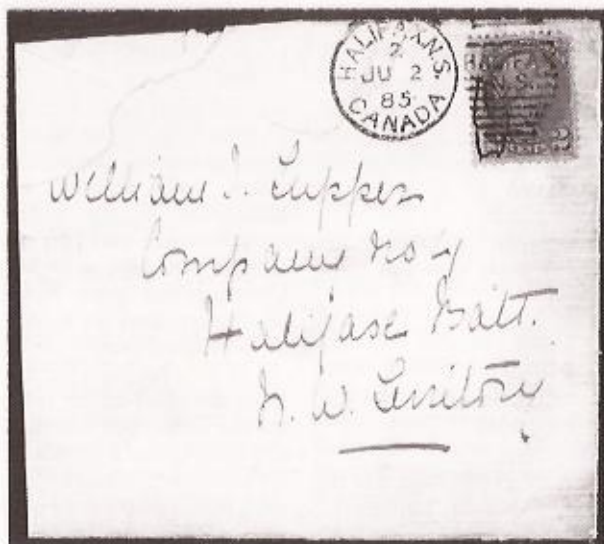 HALIFAX N.S.
2
JU 2
85
CANADA
HALIFAX
N.S.
William J. Tupper
Company No 4
Halifax Batt.
N. W. Territory